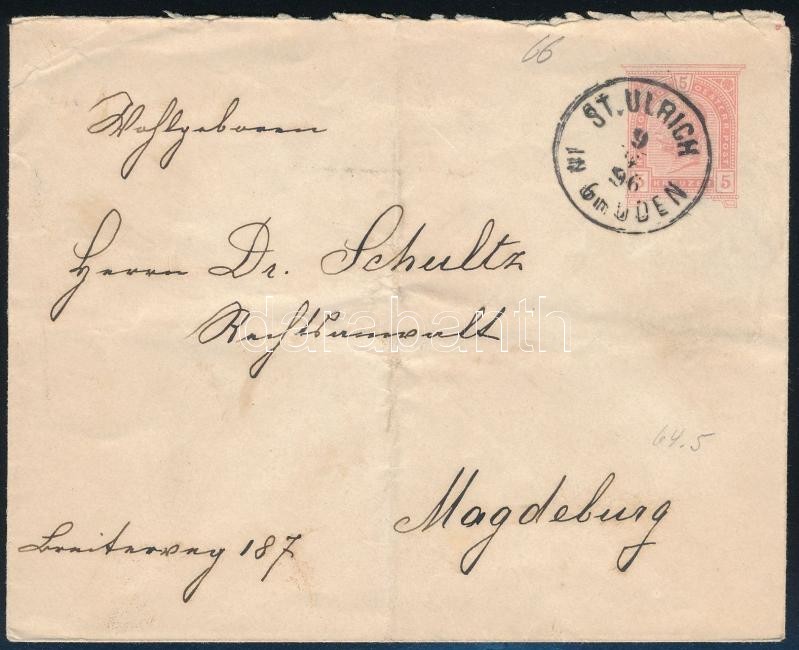 66
5
ST. ULRICH
9
96
IN GRÖDEN
5 KREUZER 5
Wohlgeboren
Herrn Dr. Schultz
Rechtsanwalt
darabanth
64.5
Magdeburg
Breiterweg 187